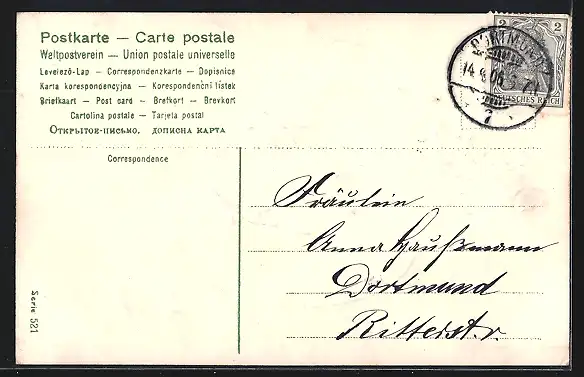 Postkarte — Carte postale
Weltpostverein — Union postale universelle
Levelező-Lap — Correspondenzkarte — Dopisnice
Karta korespondencyjna — Korespondenční lístek
Briefkaart — Post card — Brefkort — Brevkort
Cartolina postale — Tarjeta postal
Открытое-письмо. дописна карта
Correspondence
2 2
DORTMUND
14.
06.
DEUTSCHES REICH
7
Fräulein
Anna Haußmann
Dortmund
Ritterstr.
Serie 521